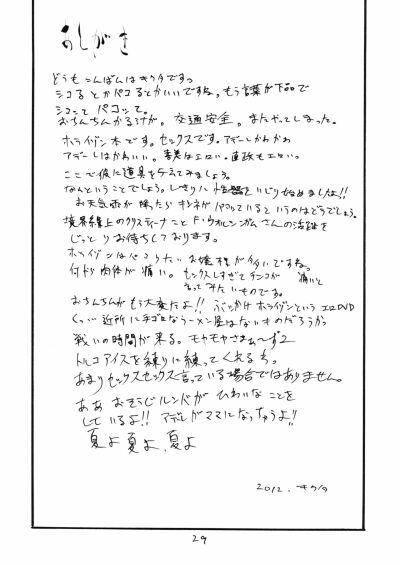 あとがき
どうも こんばんは キクタです。
シコる とか パコる とか いいですね。もう言葉が下品で
シコって パコって。
おちんちんかるけが。交通安全。またやってしまった。
ホライゾン本です。セックスです。アデーレかわかわ
アデーレはかわいい。喜美はエロい。直政もエロい。
ここで彼に道具を与えてみましょう。
なんということでしょう。しきりに性器をいじり始めましたよ!!
お天気雨が降ったら キツネが パコっている というのはどうでしょう。
境界線上のクリスティーナこと F・ウオルシンガムさんの活躍を
じっとりお待ちしております。
ホライゾンはパコりたい お嬢様が多いですね。
何か肉体が痛い。セックスしすぎてチンコが 痛いと
言ってみたいものです。
おちんちんがもう大変だよ!! ぶっかけホライゾンという エロDVD
くっ… 近所に手ゴロなラーメン屋はないものだろうか
戦いの時間が来る。モヤモヤさまぁ〜ず2
トルコアイスを練りに練ってくれるわ。
あまりセックスセックス言っている場合ではありません。
ああ おそうじルンバが ひわいなことを
しているよ!! アデーレがママになっちゃうよ!!
夏よ 夏よ、夏よ
2012. キクタ
29